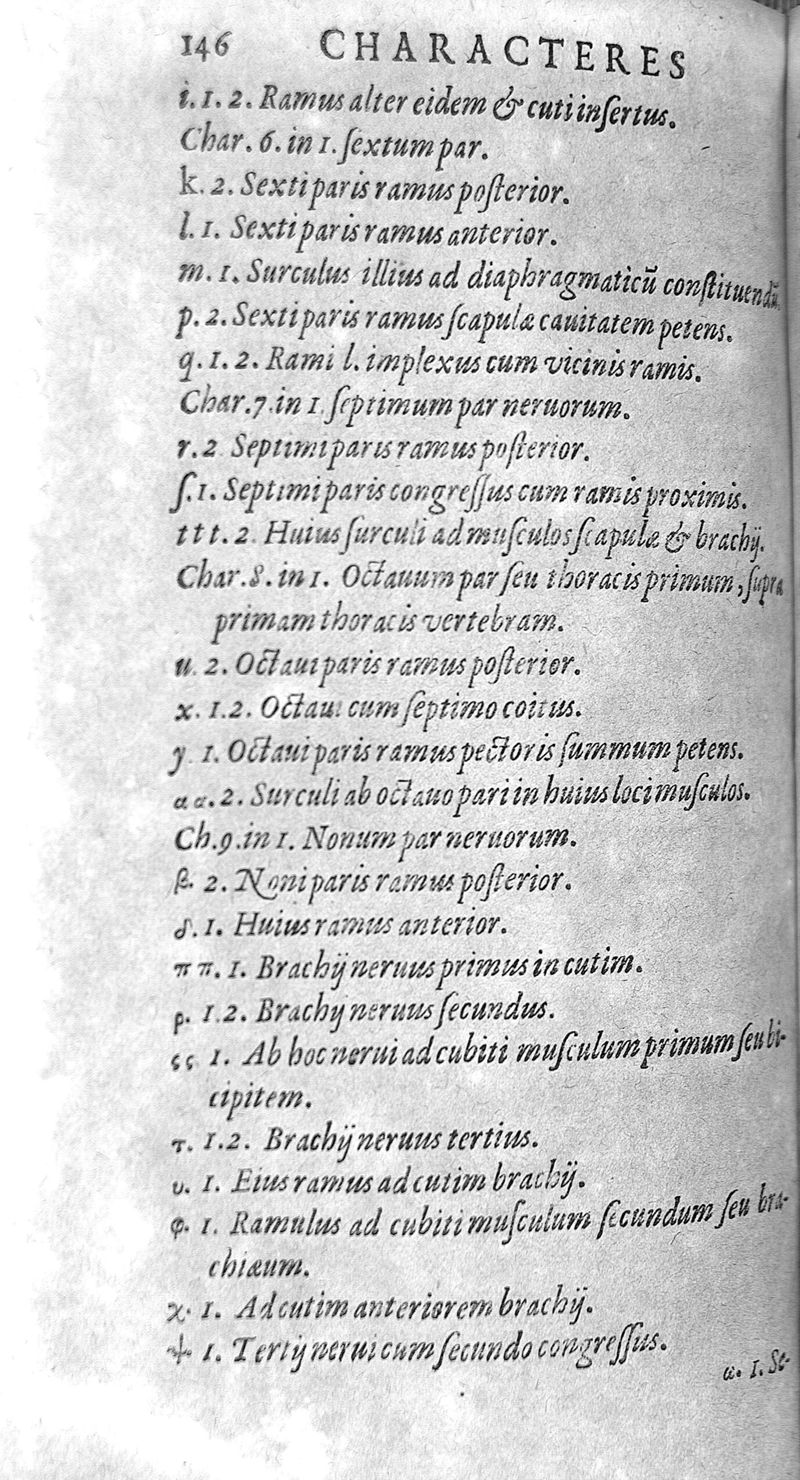 146 CHARACTERES
i. 1. 2. Ramus alter eidem & cuti inſertus.
Char. 6. in 1. ſextum par.
k. 2. Sexti paris ramus poſterior.
l. 1. Sexti paris ramus anterior.
m. 1. Surculus illius ad diaphragmaticũ conſtituendũ.
p. 2. Sexti paris ramus ſcapulæ cauitatem petens.
q. 1. 2. Rami l. implexus cum vicinis ramis.
Char. 7. in 1. ſeptimum par neruorum.
r. 2 Septimi paris ramus poſterior.
ſ. 1. Septimi paris congreſſus cum ramis proximis.
t t t. 2. Huius ſurculi ad muſculos ſcapulæ & brachij.
Char. 8. in 1. Octauum par ſeu thoracis primum, ſupra
primam thoracis vertebram.
u. 2. Octaui paris ramus poſterior.
x. 1. 2. Octaui cum ſeptimo coitus.
y 1. Octaui paris ramus pectoris ſummum petens.
α α. 2. Surculi ab octauo pari in huius loci muſculos.
Ch. 9. in 1. Nonum par neruorum.
β. 2. Noni paris ramus poſterior.
δ. 1. Huius ramus anterior.
π π. 1. Brachij neruus primus in cutim.
ρ. 1. 2. Brachij neruus ſecundus.
ς ς 1. Ab hoc nerui ad cubiti muſculum primum ſeu bi-
cipitem.
τ. 1. 2. Brachij neruus tertius.
υ. 1. Eius ramus ad cutim brachij.
φ. 1. Ramulus ad cubiti muſculum ſecundum ſeu bra-
chiæum.
χ. 1. Ad cutim anteriorem brachij.
ψ. 1. Tertij nerui cum ſecundo congreſſus.
ω. 1. Se-